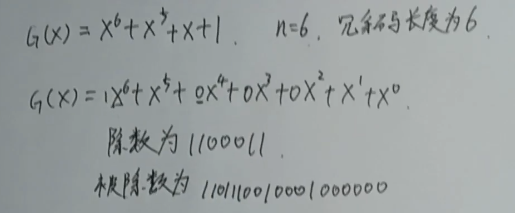 G(X) = X⁶+X⁵+X+1. n=6, 冗余码长度为6.
G(X) = 1X⁶+X⁵+0X⁴+0X³+0X²+X¹+X⁰.
除数为1100011.
被除数为110110010001000000